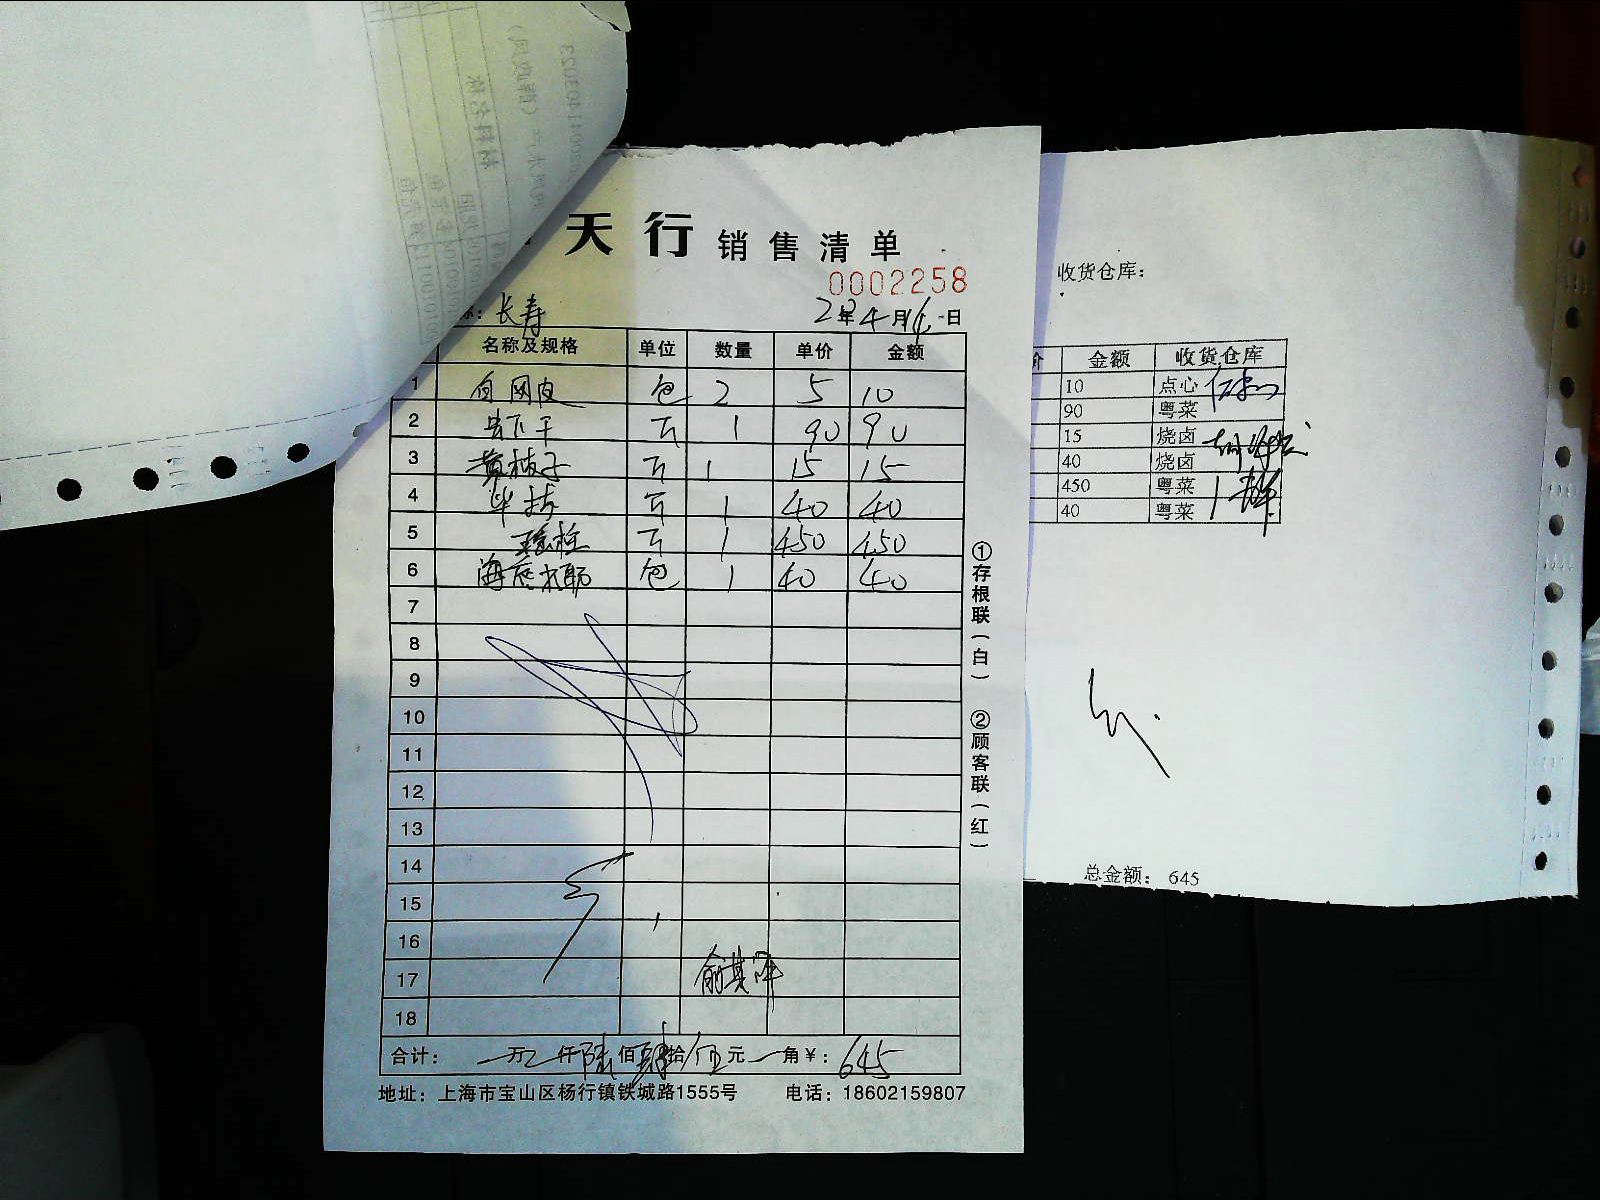 天行 销售清单
0002258
长寿
2年4月 日
名称及规格 单位 数量 单价 金额
1 白网皮 包 2 5 10
2 干 斤 1 90 90
3 黄枝子 斤 1 15 15
4 斤 1 40 40
5 瑶柱 斤 1 450 450
6 海底 包 1 40 40
7
8
9
10
11
12
13
14
15
16
17
18
合计: 万 仟陆佰肆拾伍元 角¥: 645
地址: 上海市宝山区杨行镇铁城路1555号 电话: 18602159807
①存根联(白) ②顾客联(红)
收货仓库:
价 金额 收货仓库
10 点心
90 粤菜
15 烧卤
40 烧卤
450 粤菜
40 粤菜
总金额: 645